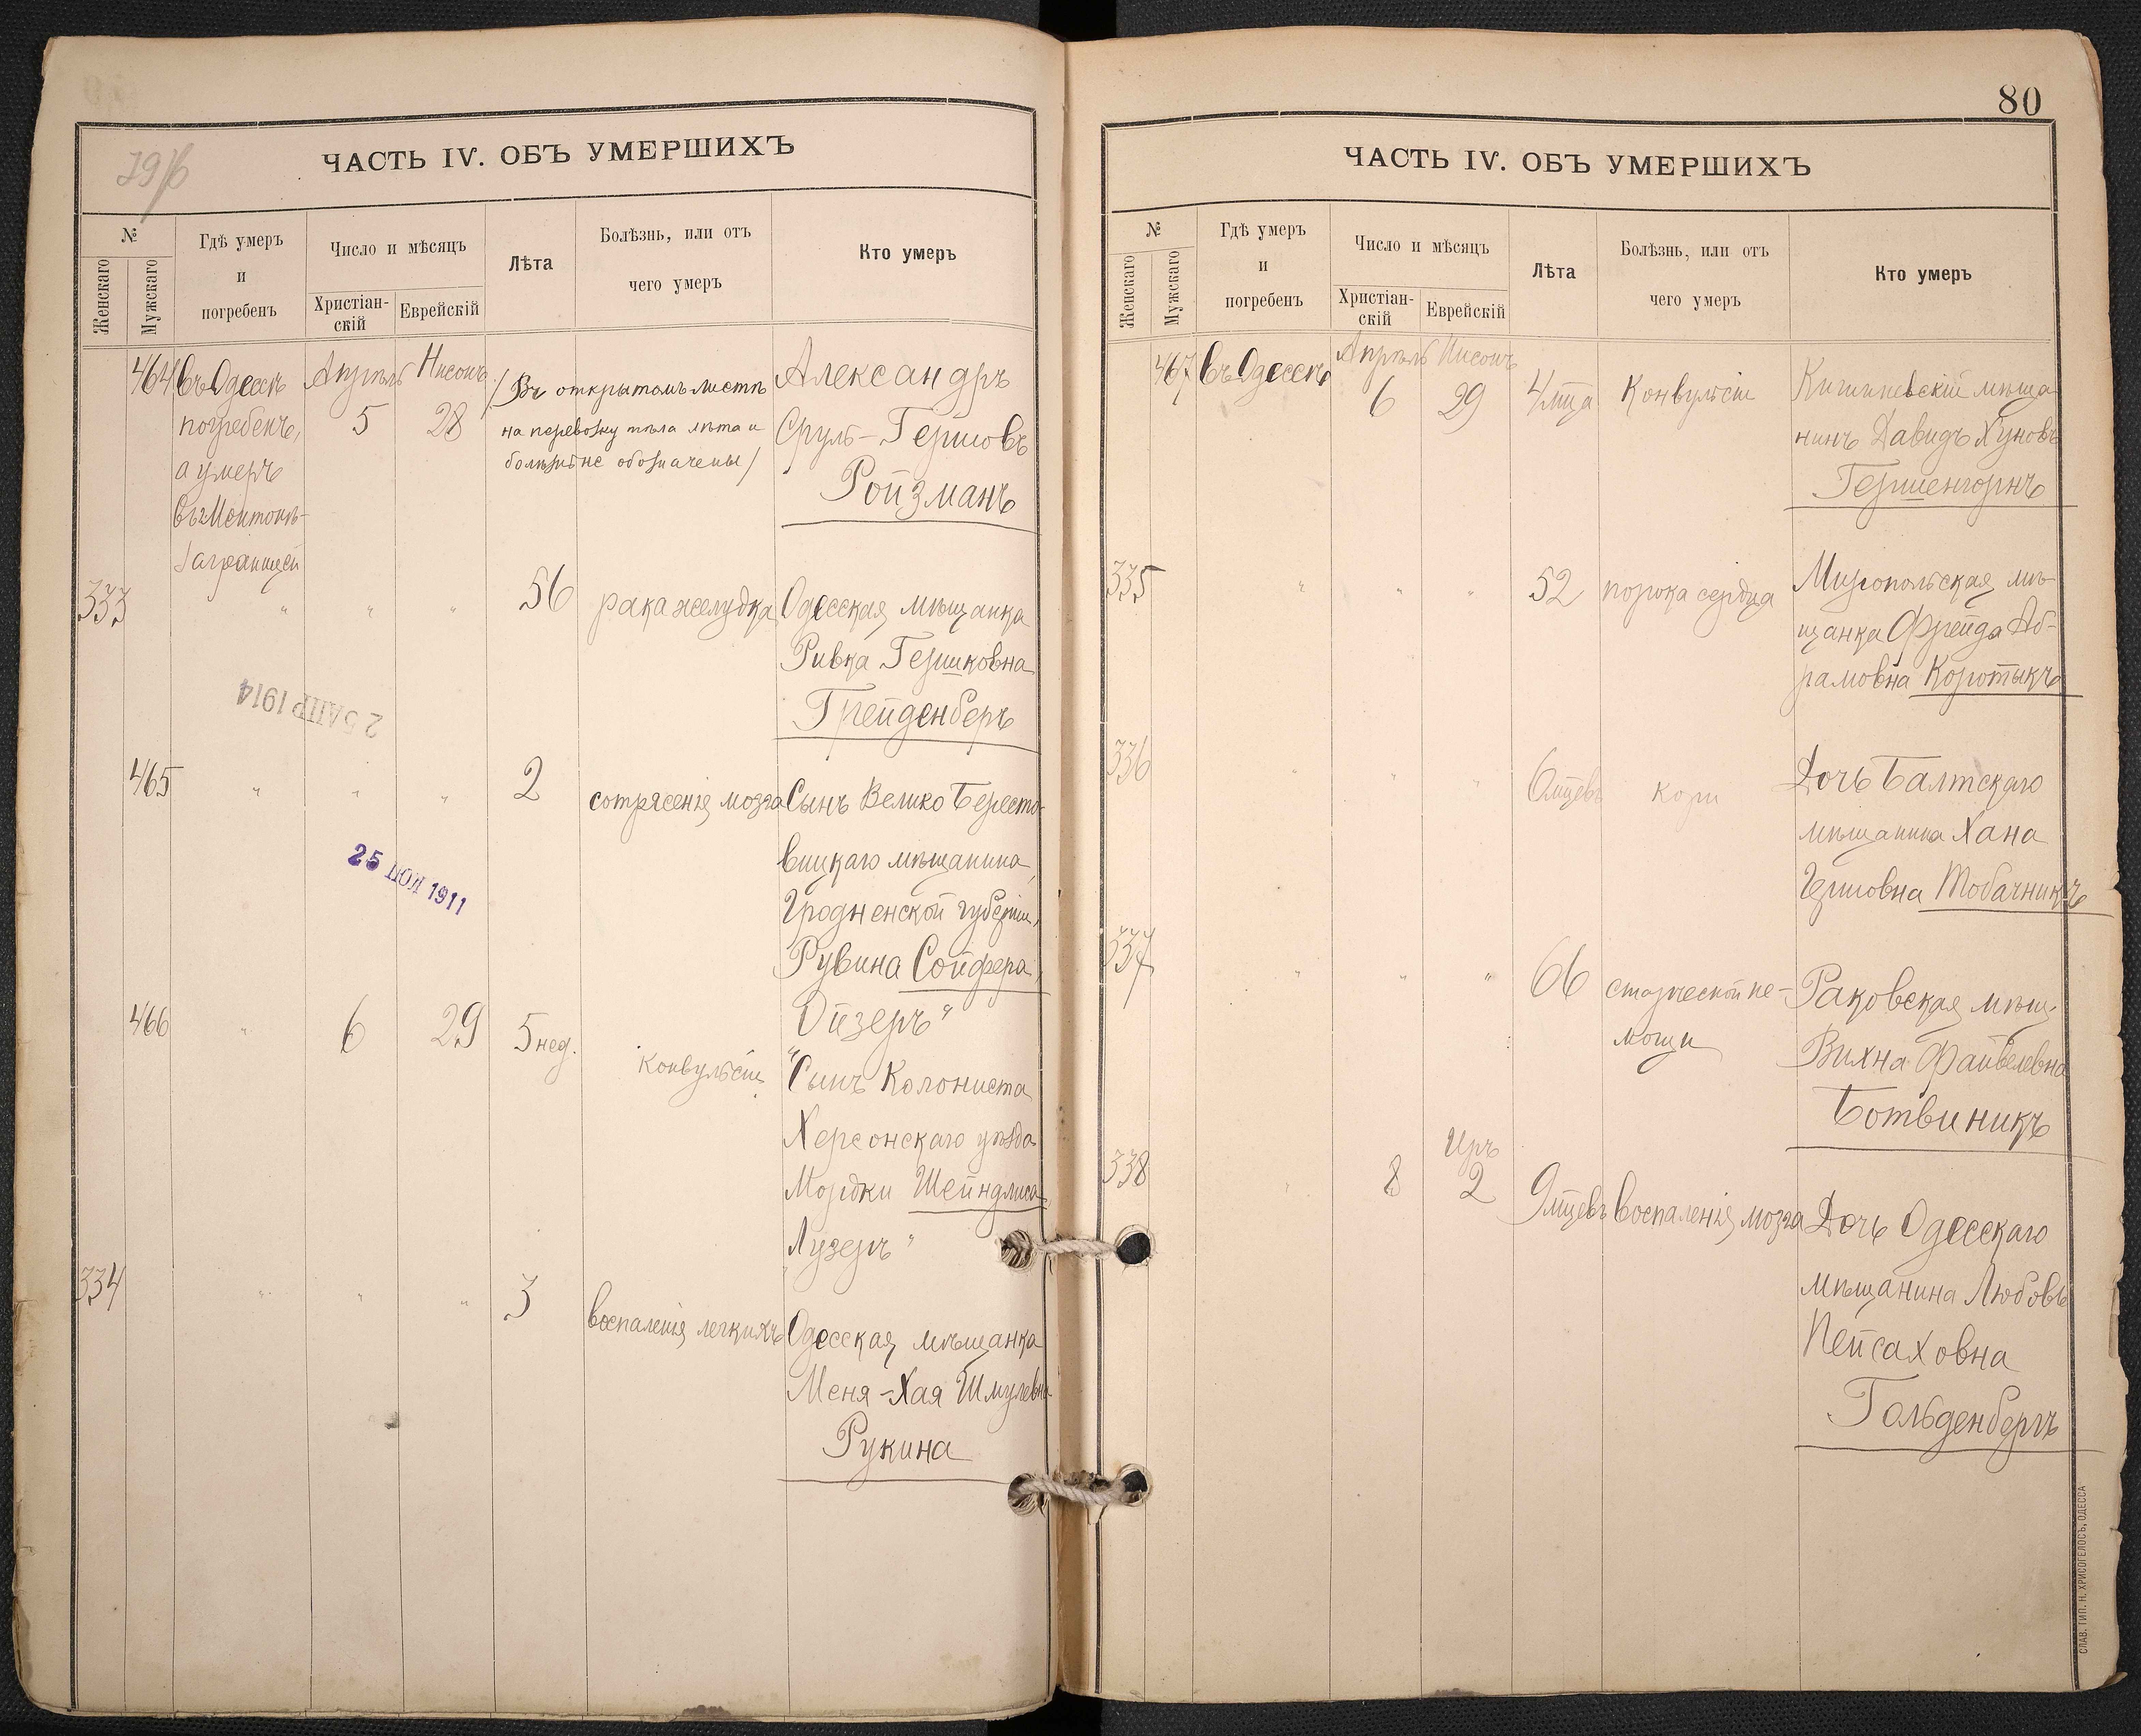 79/б
ЧАСТЬ IV. ОБЪ УМЕРШИХЪ
№
Женскаго
Мужскаго
Гдѣ умеръ
и
погребенъ
Число и мѣсяцъ
Христіан-
скій
Еврейскій
Лѣта
Болѣзнь, или отъ
чего умеръ
Кто умеръ
464 въ Одессѣ Апрѣль Нисонъ /Въ открытомъ листѣ Александръ
погребенъ, 5 28 на перевозку тѣла лѣта и Сруль-Гершовъ
а умеръ болѣзнь не обозначены/ Ройзманъ
въ Ментонѣ-
заграницей
333 " " " 56 рака желудка Одесская мѣщанка
Ривка Гершковна
Грейденберъ
25 АПР 1914
465 " " " 2 сотрясенія мозга Сынъ Велико Бересто-
вицкаго мѣщанина,
Гродненской губерніи,
25 НОЯ 1911
Рувина Сойфера,
Ойзеръ"
466 " 6 29 5 нед. Конвульсіи "Сынъ Колониста
Херсонскаго уѣзда
Мордки Шейндлиса
Лузеръ"
334 " " " 3 воспаленія легкихъ Одесская мѣщанка
Меня-Хая Шмулевна
Рукина
80
ЧАСТЬ IV. ОБЪ УМЕРШИХЪ
№
Женскаго
Мужскаго
Гдѣ умеръ
и
погребенъ
Число и мѣсяцъ
Христіан-
скій
Еврейскій
Лѣта
Болѣзнь, или отъ
чего умеръ
Кто умеръ
467 въ Одессѣ Апрѣль Нисонъ
6 29 4 мца Конвульсіи Кишиневскій мѣща-
нинъ Давидъ Хуновъ
Гершенгорнъ
335 " " " 52 порока сердца Миропольская мѣ-
щанка Фрейда Аб-
рамовна Коротыкъ
336 " " " 6 мцевъ кори Дочь Балтскаго
мѣщанина Хана
Гершовна Тобачникъ
337 " " " 66 старческой не- Раковская мѣщ.
мощи Вихна Файвелевна
Ботвиникъ
338 " 8 Иръ
2 9 мцевъ воспаленія мозга Дочь Одесскаго
мѣщанина Любовь
Пейсаховна
Гольденбергъ
СЛАВ. ТИП. Н. ХРИСОГЕЛОСЪ, ОДЕССА